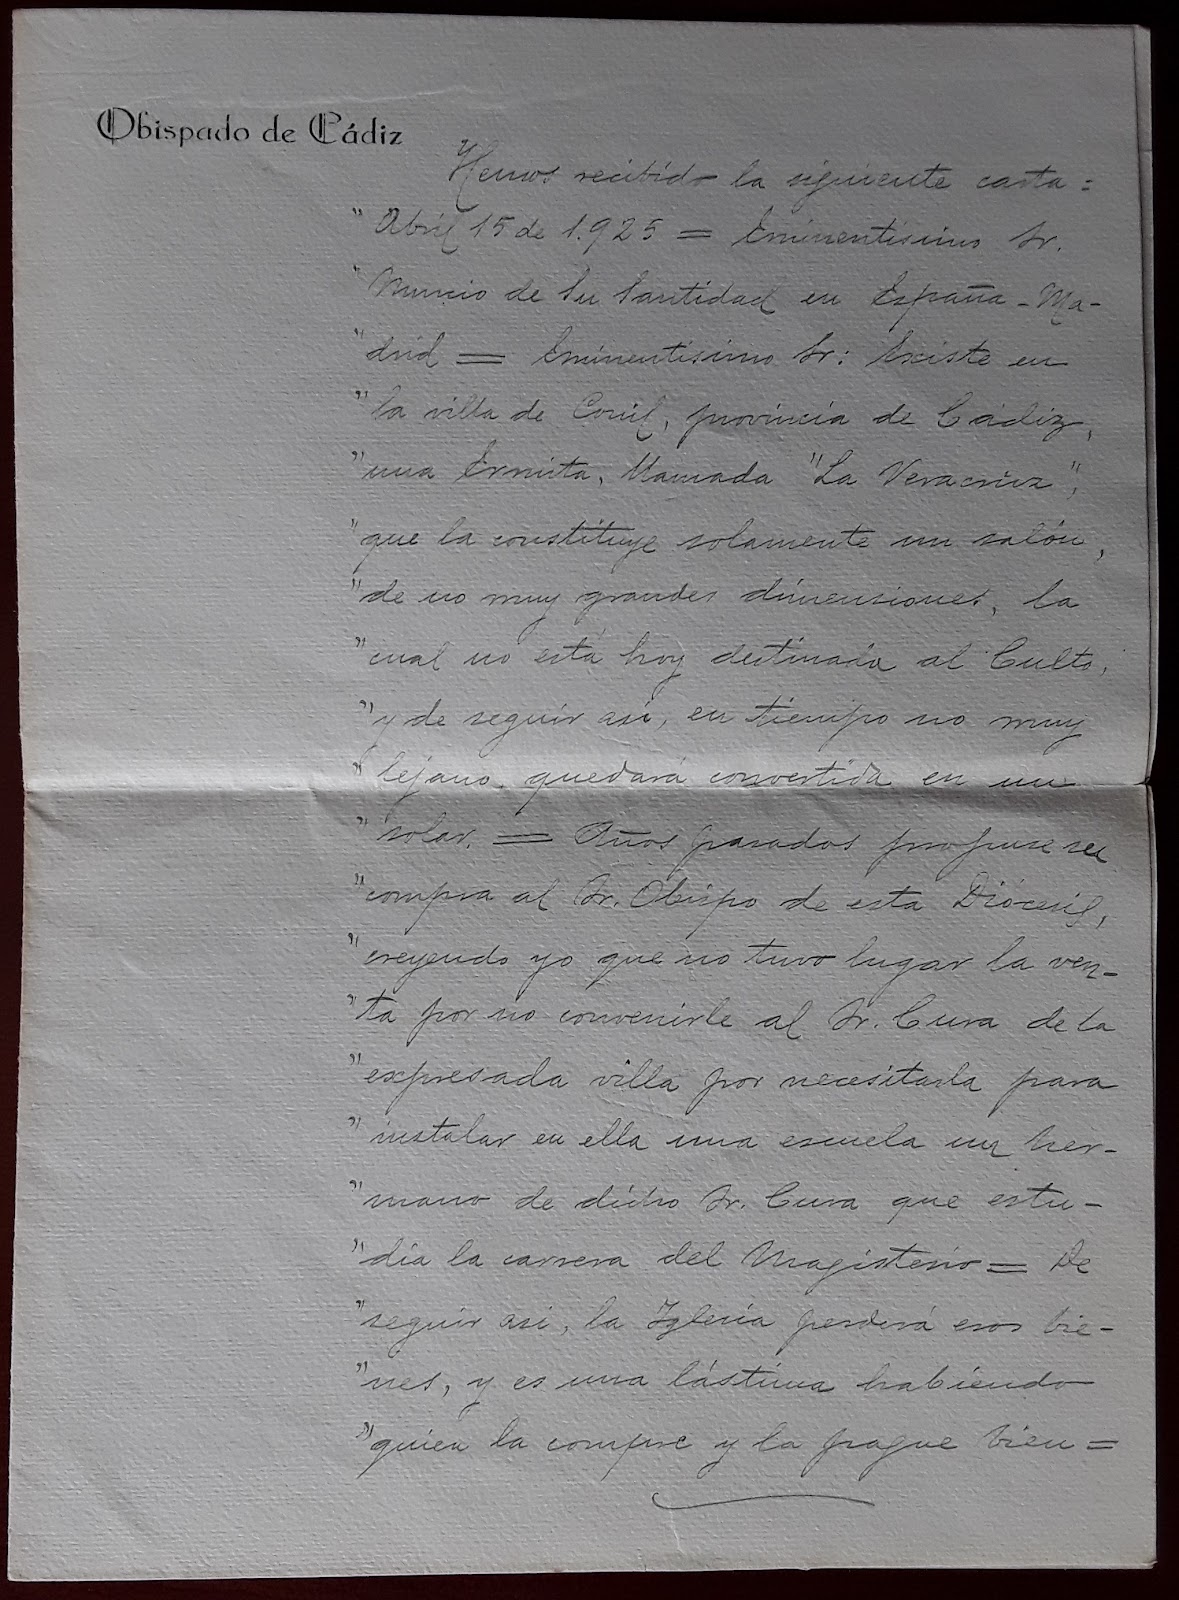 Obispado de Cádiz
Hemos recibido la siguiente carta:
" Abril 15 de 1.925 = Eminentísimo Sr.
" Nuncio de Su Santidad en España - Ma-
" drid = Eminentísimo Sr: Existe en
" la villa de Conil, provincia de Cádiz,
" una Ermita, llamada "La Veracruz",
" que la constituye solamente un salón,
" de no muy grandes dimensiones, la
" cual no está hoy destinada al Culto,
" y de seguir así, en tiempo no muy
" lejano, quedará convertida en un
" solar. = Años pasados propuse su
" compra al Sr. Obispo de esta Diócesis,
" creyendo yo que no tuvo lugar la ven-
" ta por no convenirle al Sr. Cura de la
" expresada villa por necesitarla para
" instalar en ella una escuela un her-
" mano de dicho Sr. Cura que estu-
" dia la carrera del Magisterio = De
" seguir así, la Iglesia perderá esos bie-
" nes, y es una lástima habiendo
" quien la compre y la pague bien =